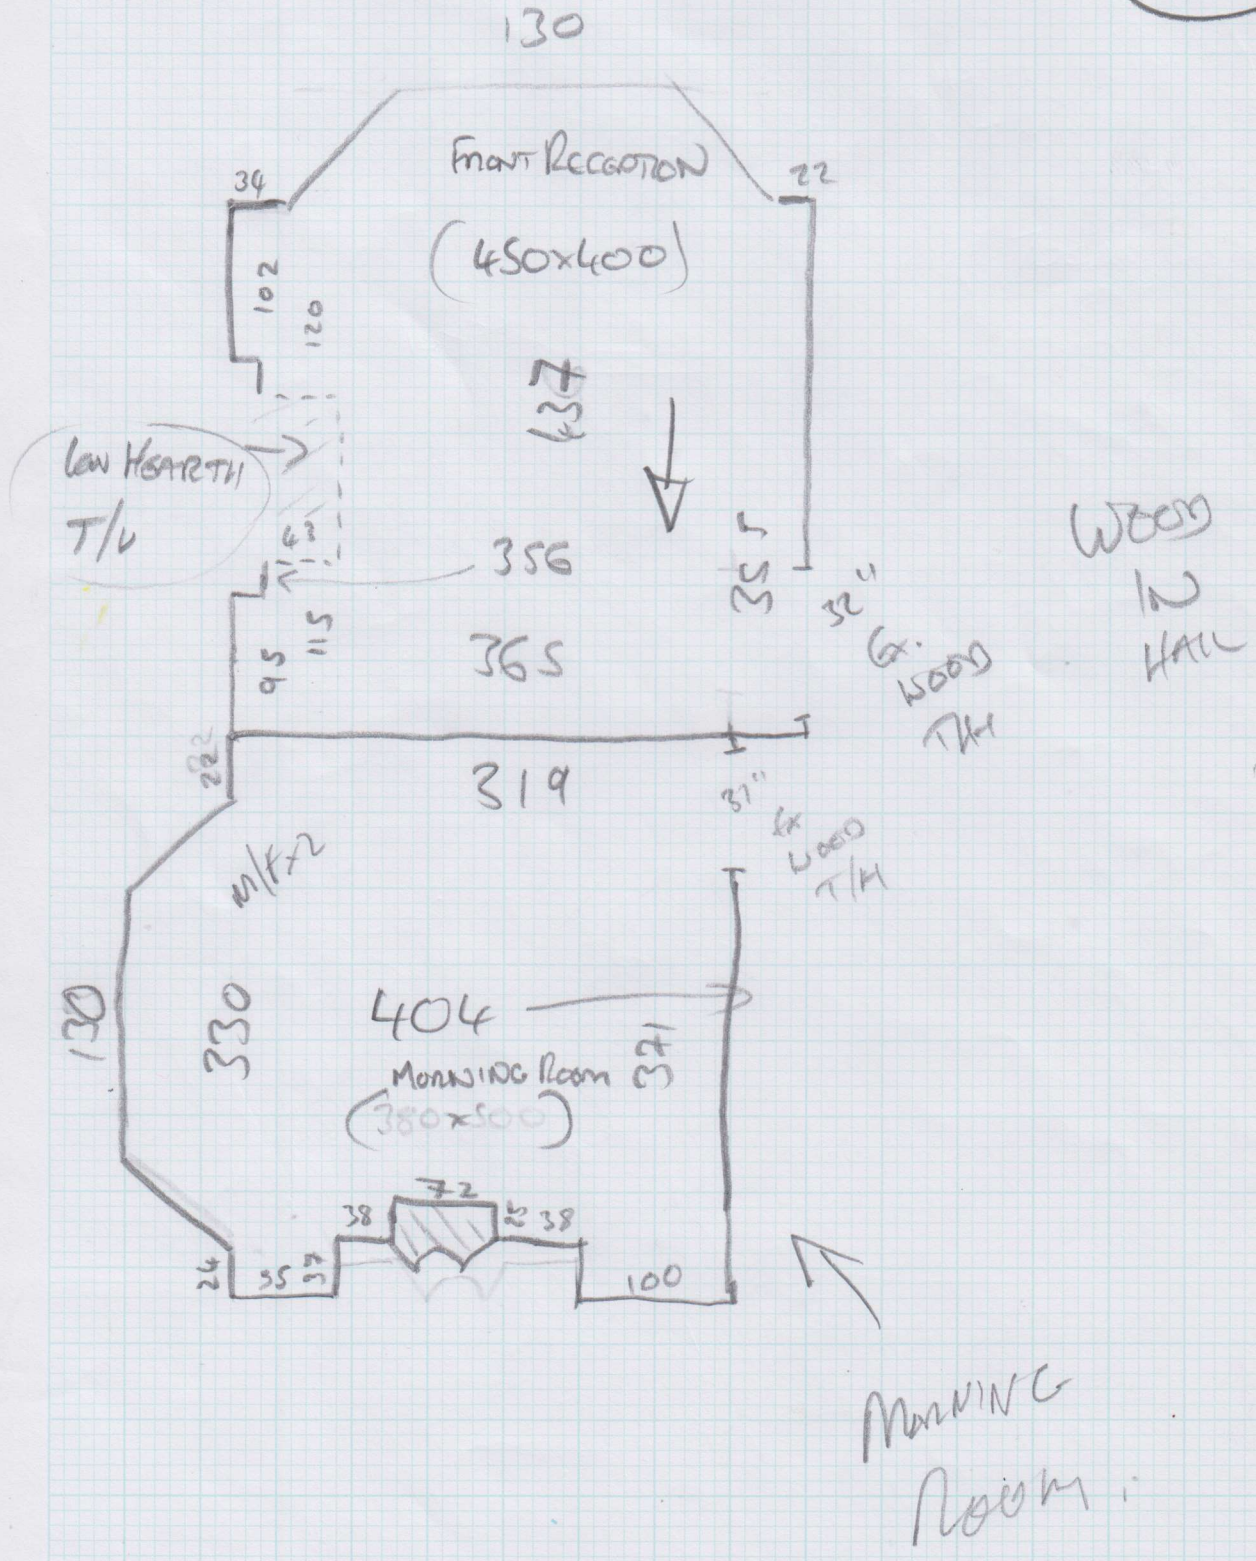 130
FRONT RECEPTION
34
22
(450x400)
102
120
437
LOW HEARTH
T/V
43
356
355
32"
EX.
WOOD
T/H
WOOD
IN
HALL
95
115
365
222
319
31"
EX
WOOD
T/H
M/Fx2
130
330
404
371
MORNING ROOM
(380x500)
72
38
38
24
55
37
100
MORNING
ROOM.